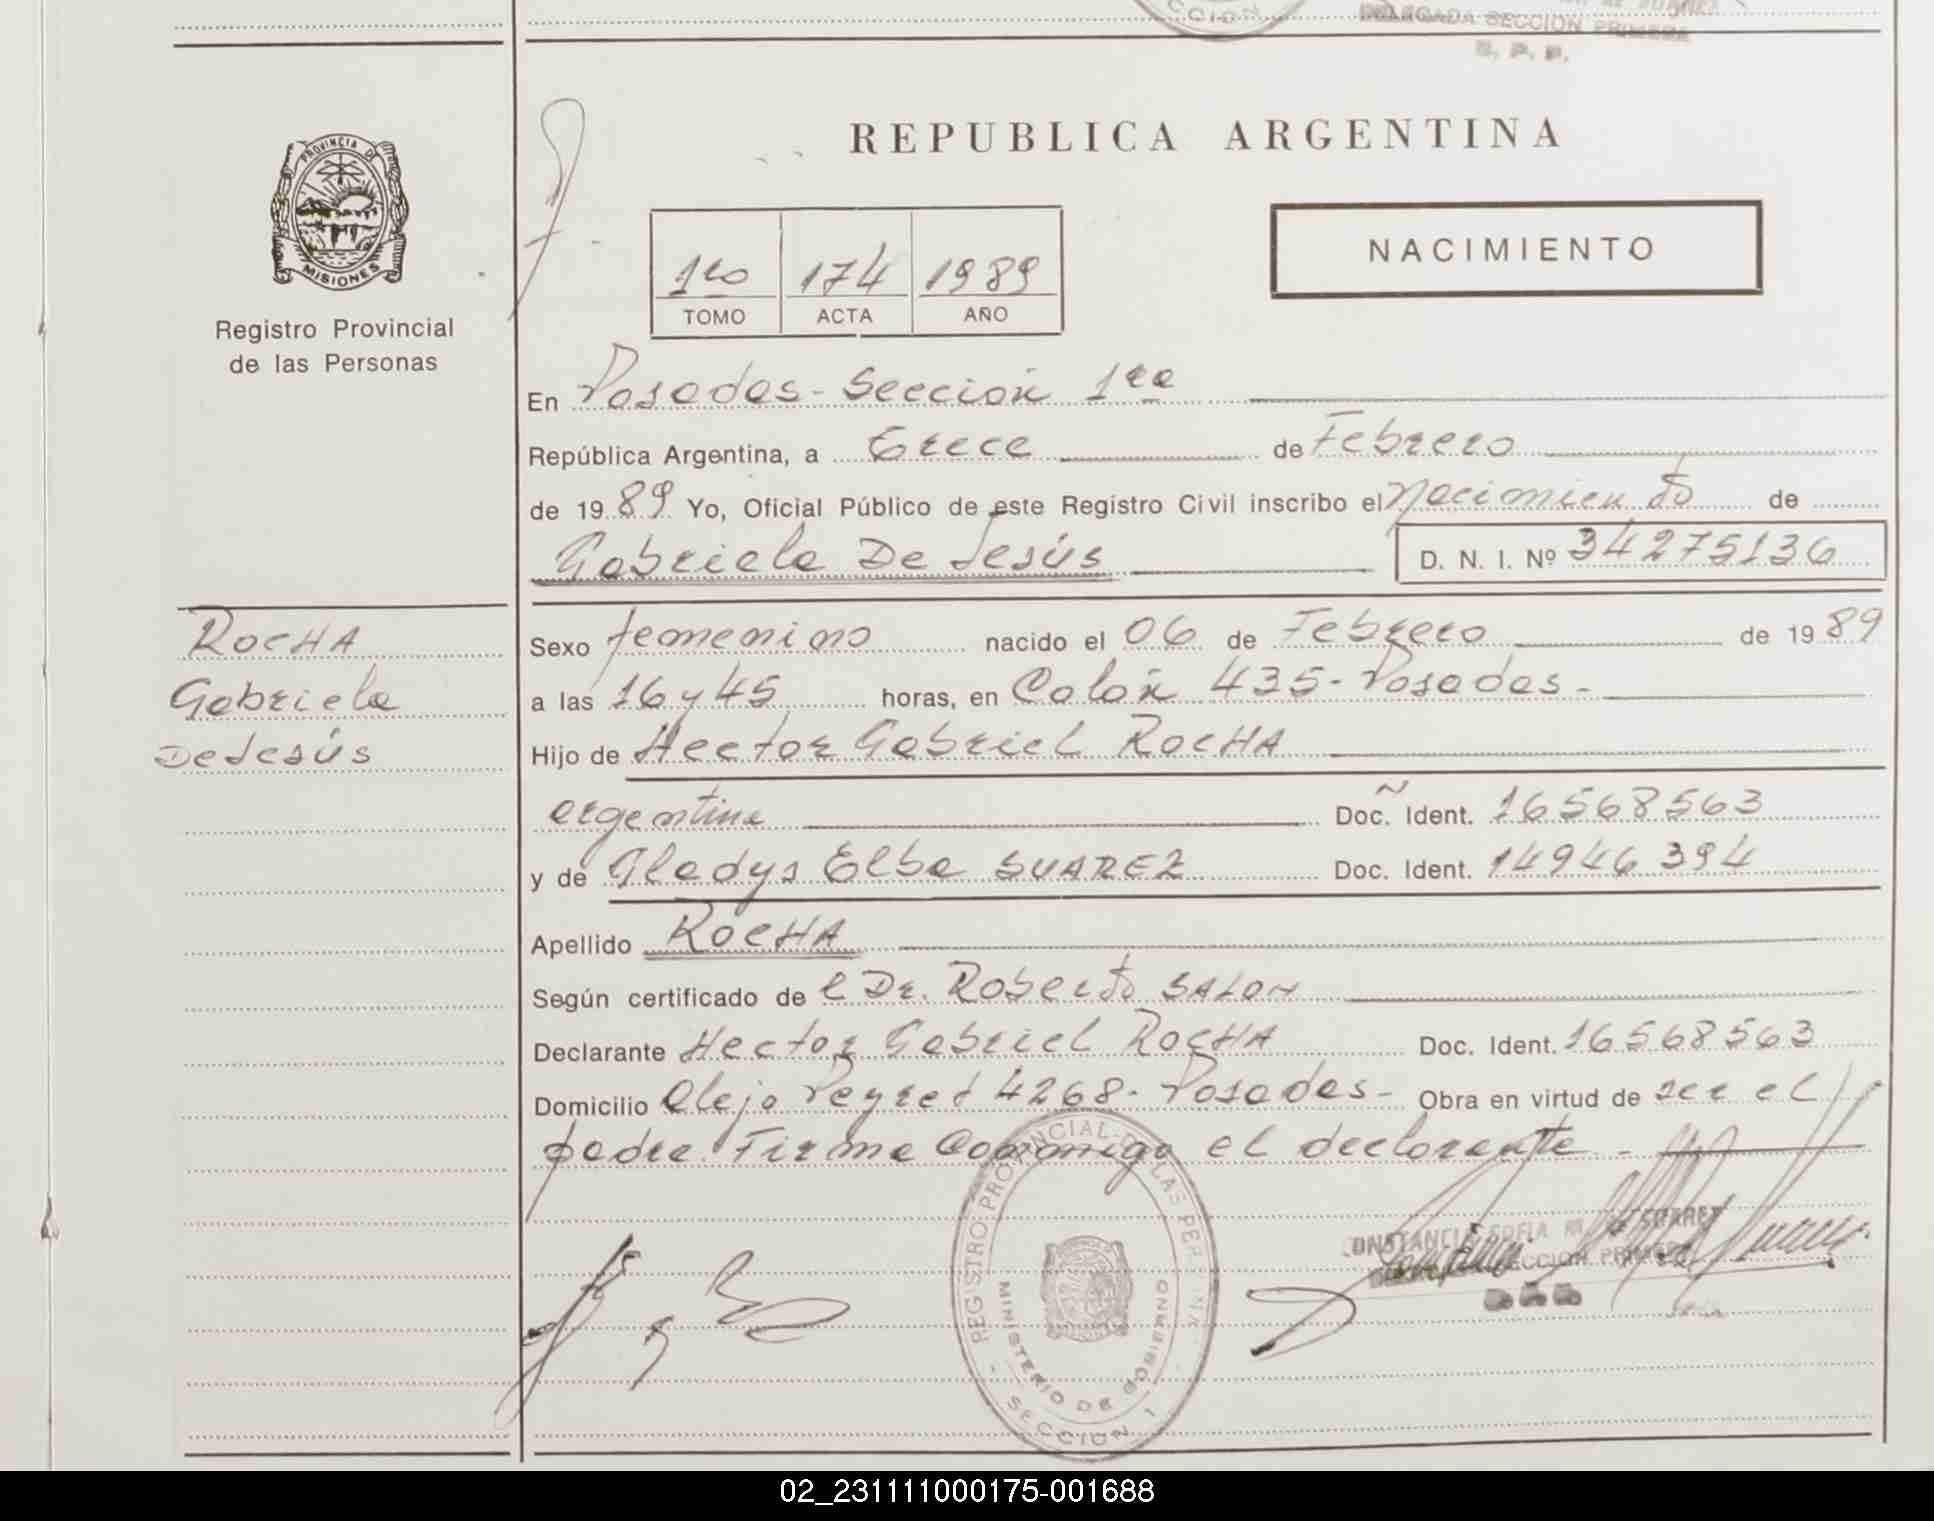 CCION
DELEGADA SECCION PRIMERA
R. P. P.
PROVINCIA DE
MISIONES
Registro Provincial
de las Personas
REPUBLICA ARGENTINA
NACIMIENTO
1ro 174 1989
TOMO ACTA AÑO
En Posadas - Sección 1ra
República Argentina, a trece de Febrero
de 1989 Yo, Oficial Público de este Registro Civil inscribo el nacimiento de
Gabriela De Jesús D. N. I. Nº 34275136
ROCHA
Gabriela
De Jesús
Sexo femenino nacido el 06 de Febrero de 1989
a las 16 y 45 horas, en Colón 435 - Posadas -
Hijo de Hector Gabriel ROCHA
argentina Doc. Ident. 16568563
y de Gladys Elba SUAREZ Doc. Ident. 14946394
Apellido ROCHA
Según certificado de el Dr. Roberto SALOM
Declarante Hector Gabriel ROCHA Doc. Ident. 16568563
Domicilio Alejo Peyret 4268 - Posadas - Obra en virtud de ser el
padre. Firma Conmigo el declarante -
REGISTRO PROVINCIAL DE LAS PERSONAS
MINISTERIO DE GOBIERNO
- SECCION 1 -
CONSTANCIA SOFIA DE SUAREZ
SECCION PRIMERA
02_231111000175-001688